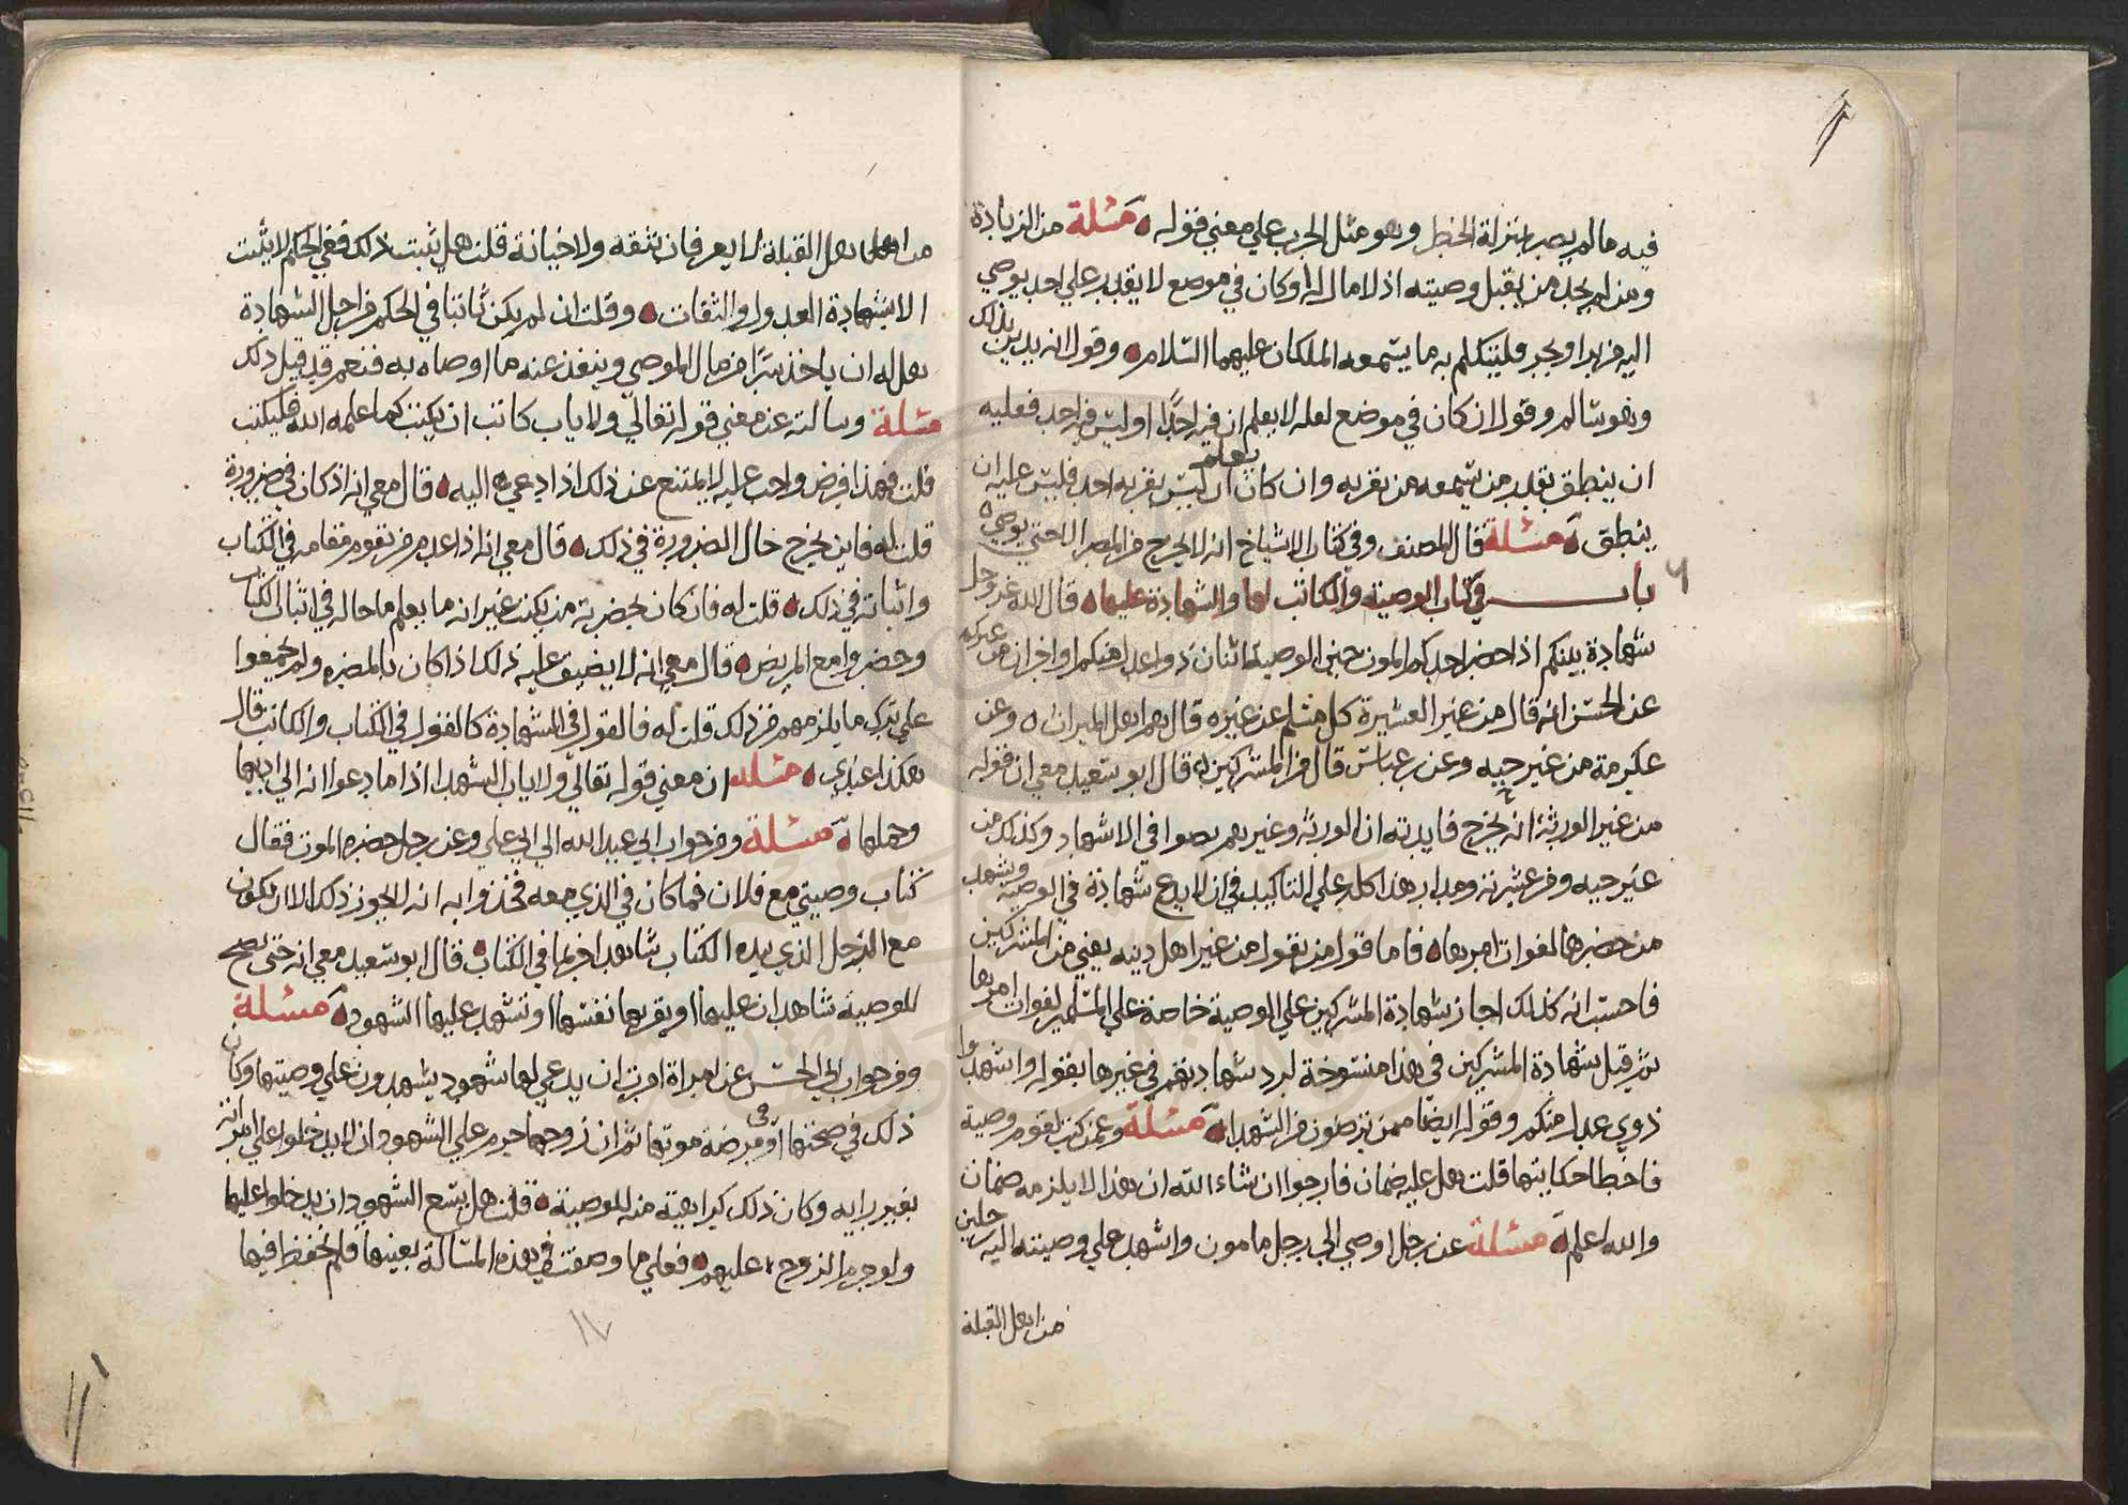 فيه ما لم يصر بمنزلة الخطر وهو مثل الحرب علي معني قوله ه مسئلة من الزيادة
ومن لم يجد من يقبل وصيته اذ لا مال له او كان في موضع لا يقدر علي احد يوصي
اليه من بر او بحر فليتكلم به ما يسمعه الملكان عليهما السلام ه وقول انه يدين بذلك
وهو سالم وقول ان كان في موضع لعله لا يعلم ان فيه احدًا او ليس فيه احد فعليه
ان ينطق بقدر من يسمعه من بقربه وان كان يعلم ان ليس بقربه احد فليس عليه ان
ينطق ه مسئلة قال المصنف وفي كتاب الاشياخ انه لا يخرج من المصر الا حتي يوصي ه
باب في كتاب الوصية والكاتب لها والشهادة عليها ه قال الله عز وجل
شهادة بينكم اذا حضر احدكم الموت حين الوصية اثنان ذوا عدل منكم او اخران من غيركم
عن الحسن انه قال من غير العشيرة كل مسلم عن غيره قال هم اهل الميراث ه وعن
عكرمة من غير حيه وعن بن عباس قال من المشركين ه قال ابو سعيد معي ان قوله
من غير الورثة انه يخرج فايدته ان الورثة وغيرهم بصوا في الاشهاد وكذلك من
غير حيه ومن عشيرته وهذا كله علي التاكيد في ان لا يدع شهادة في الوصية ويشهد
من حضرها لفوات امرها ه فاما قول من يقول من غير اهل دينه يعني من المشركين
فاحسب انه كذلك اجاز شهادة المشركين علي الوصية خاصة علي المسلمين لفوات امرها
ثم قيل شهادة المشركين في هذا منسوخة لرد شهادتهم في غيرها بقوله واشهدوا
ذوي عدل منكم وقوله ايضًا ممن ترضون من الشهدا ه مسئلة وعمن كتب لقوم وصية
فاخطا حكايتها قلت هل عليه ضمان فارجوا ان شاء الله ان هذا لا يلزمه ضمان
والله اعلم ه مسئلة عن رجل اوصي الي رجل مامون واشهد علي وصيته اليه رجلين
من اهل القبلة
من اهل القبلة لا يعرفان بثقه ولا خيانة قلت هل يثبت ذلك ففي الحكم لا يثبت
الا بشهادة العدول والثقات ه وقلت ان لم يكن ثابتا في الحكم من اجل الشهادة
هل له ان ياخذ سرًا من مال الموصي وينفذ عنه ما اوصاه به فنعم قد قيل ذلك
مسئلة وسالته عن معني قوله تعالي ولا ياب كاتب ان يكتب كما علمه الله فليكتب
قلت فهذا فرض واجب عليه لا يمتنع عن ذلك اذا دعي اليه ه قال معي انه اذ كان في ضرورة
قلت له فاين يخرج حال الضرورة في ذلك ه قال معي انه اذا عدم من يقوم مقامه في الكتاب
واثباته في ذلك ه قلت له فان كان بحضرته من يكتب غير انه ما يعلم ما حاله في اثبات الكتاب
وحضروا مع المريض ه قال معي انه لا يضيق عليه ذلك اذا كان بالمصر ولم يجمعوا
علي ترك ما يلزمهم من ذلك قلت له فالقول في الشهادة كالقول في الكتاب والكاتب قال
هكذا عندي ه مسئلة ان معني قوله تعالي ولا ياب الشهدا اذا ما دعوا انه الي اديها
وحملها ه مسئلة ومن جواب ابي عبد الله الي ابي علي وعن رجل حضره الموت فقال
كتاب وصيتي مع فلان فما كان في الذي معه فخذوا به انه لا يجوز ذلك الا ان يكون
مع الرجل الذي بيده الكتاب شاهد اخر بما في الكتاب ه قال ابو سعيد معي انه حتي يصح
للوصية شاهدان عليها او يقر بها نفسها او تشهد عليها الشهود ه مسئلة
ومن جواب ابي الحسن عن امراة امرت ان يدعي لها شهود يشهدون علي وصيتها وكان
ذلك في صحتها او في مرضة موتها ثم ان زوجها حرم علي الشهود ان لا يدخلوا علي امراته
بغير رايه وكان ذلك كراهية منه للوصية ه قلت هل يسع الشهود ان يدخلوا عليها
ولو حرم الزوج عليهم ه فعلي ما وصفت في هذه المسالة بعينها فلم نحفظ فيها